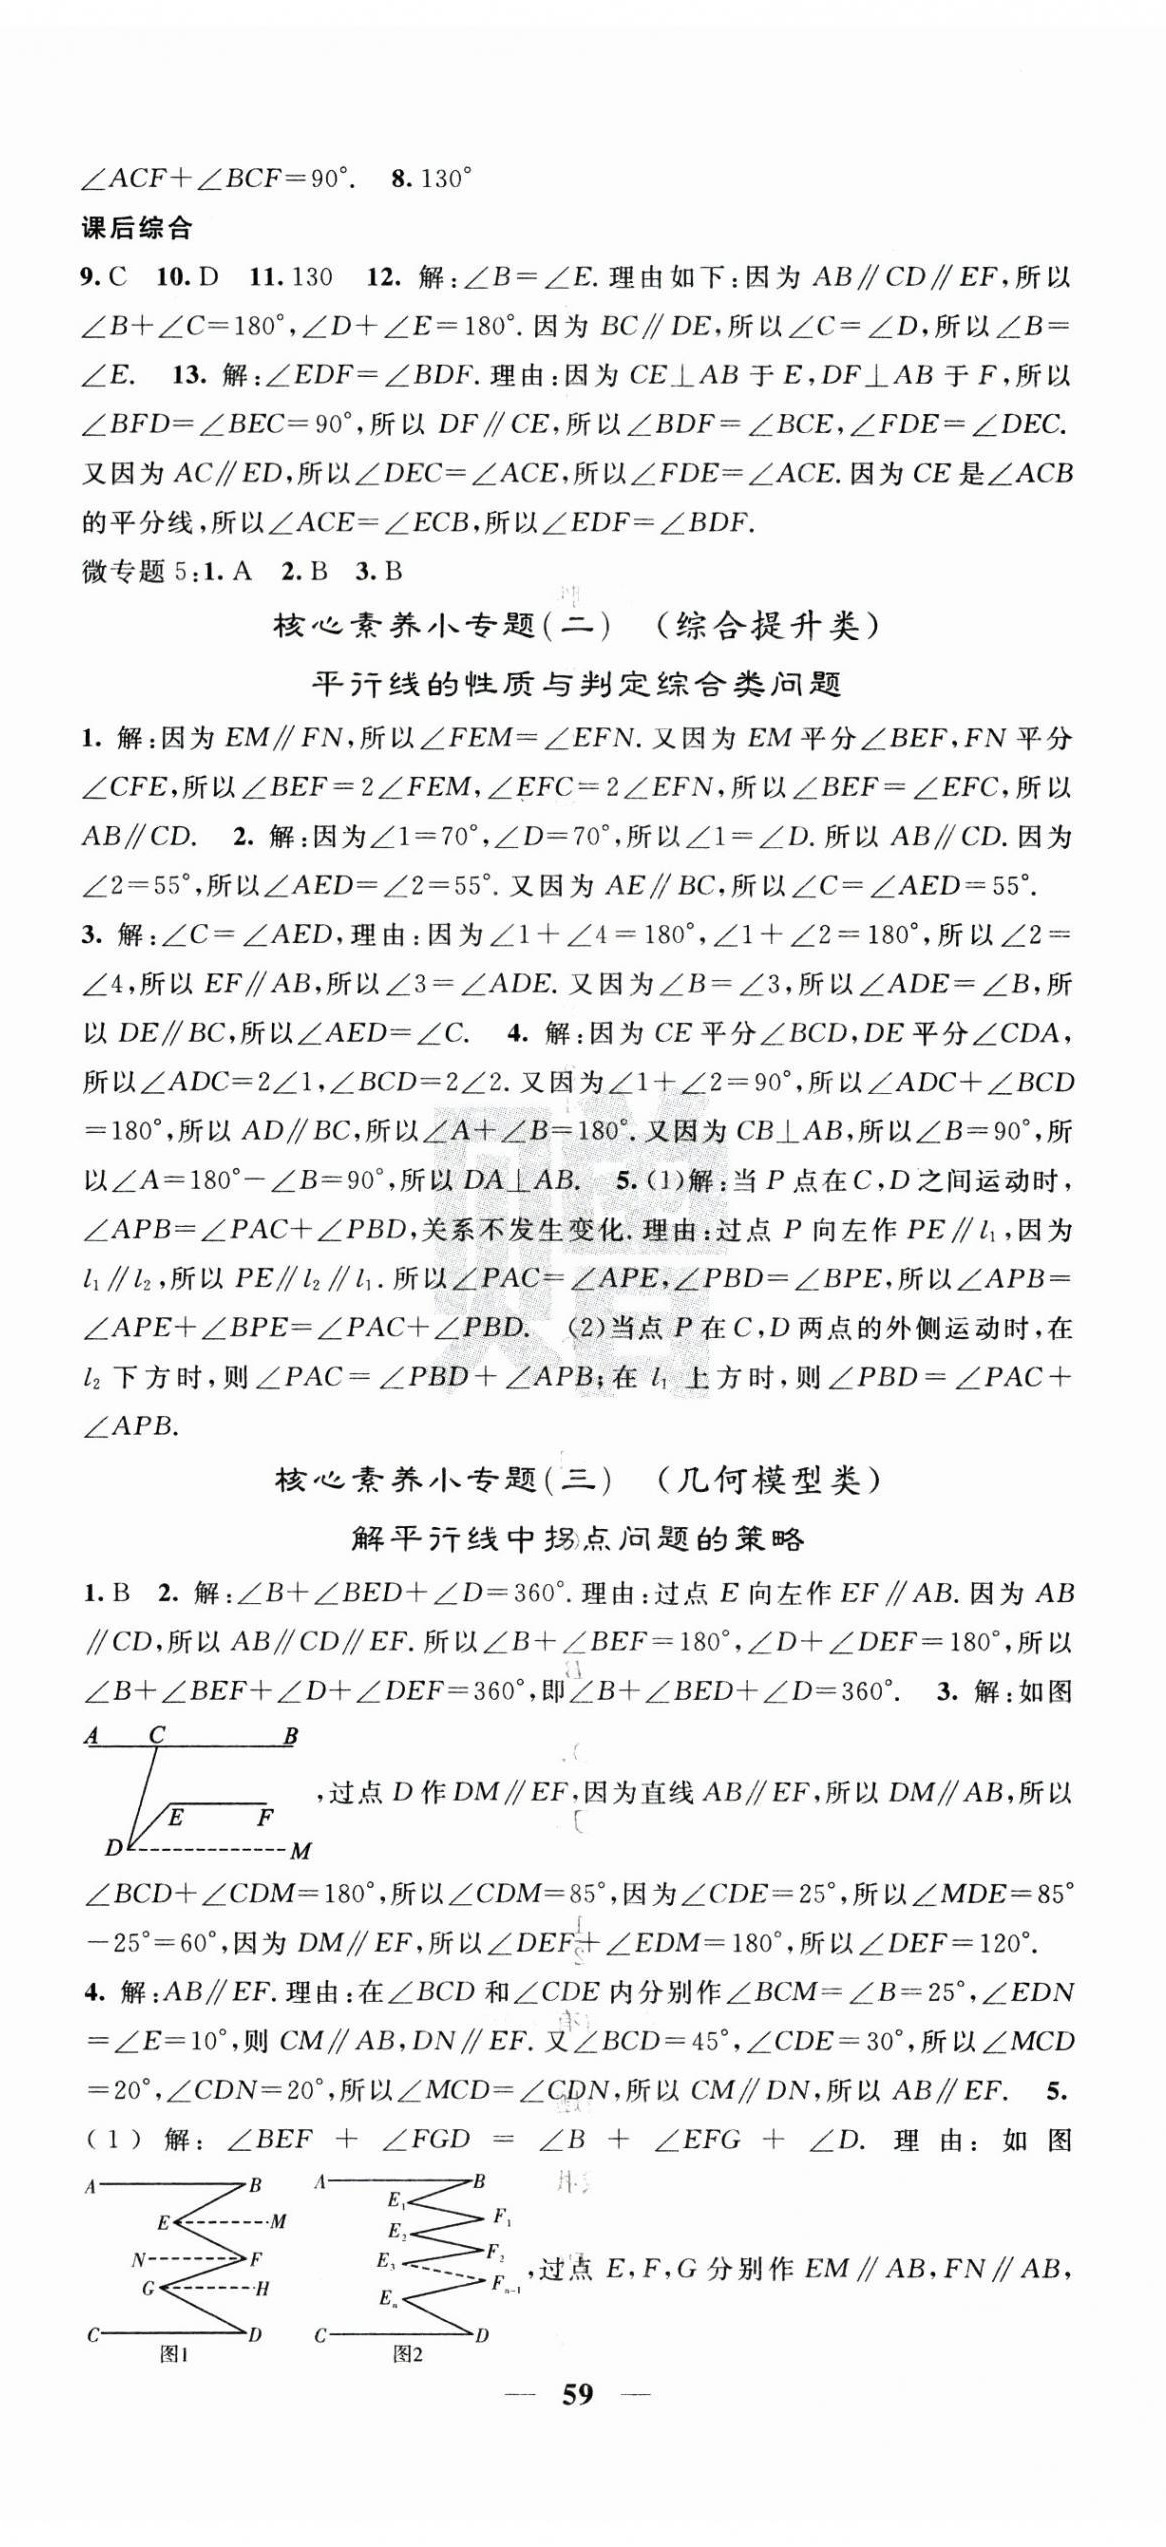 ∠ACF+∠BCF=90°. 8. 130°
课后综合
9. C 10. D 11. 130 12. 解:∠B=∠E. 理由如下:因为 AB∥CD∥EF,所以
∠B+∠C=180°,∠D+∠E=180°. 因为 BC∥DE,所以∠C=∠D,所以∠B=
∠E. 13. 解:∠EDF=∠BDF. 理由:因为 CE⊥AB 于 E,DF⊥AB 于 F,所以
∠BFD=∠BEC=90°,所以 DF∥CE,所以∠BDF=∠BCE,∠FDE=∠DEC.
又因为 AC∥ED,所以∠DEC=∠ACE,所以∠FDE=∠ACE. 因为 CE 是∠ACB
的平分线,所以∠ACE=∠ECB,所以∠EDF=∠BDF.
微专题 5:1. A 2. B 3. B
核心素养小专题(二) (综合提升类)
平行线的性质与判定综合类问题
1. 解:因为 EM∥FN,所以∠FEM=∠EFN. 又因为 EM 平分∠BEF,FN 平分
∠CFE,所以∠BEF=2∠FEM,∠EFC=2∠EFN,所以∠BEF=∠EFC,所以
AB∥CD. 2. 解:因为∠1=70°,∠D=70°,所以∠1=∠D. 所以 AB∥CD. 因为
∠2=55°,所以∠AED=∠2=55°. 又因为 AE∥BC,所以∠C=∠AED=55°.
3. 解:∠C=∠AED,理由:因为∠1+∠4=180°,∠1+∠2=180°,所以∠2=
∠4,所以 EF∥AB,所以∠3=∠ADE. 又因为∠B=∠3,所以∠ADE=∠B,所
以 DE∥BC,所以∠AED=∠C. 4. 解:因为 CE 平分∠BCD,DE 平分∠CDA,
所以∠ADC=2∠1,∠BCD=2∠2. 又因为∠1+∠2=90°,所以∠ADC+∠BCD
=180°,所以 AD∥BC,所以∠A+∠B=180°. 又因为 CB⊥AB,所以∠B=90°,所
以∠A=180°-∠B=90°,所以 DA⊥AB. 5. (1)解:当 P 点在 C,D 之间运动时,
∠APB=∠PAC+∠PBD,关系不发生变化. 理由:过点 P 向左作 PE∥l₁,因为
l₁∥l₂,所以 PE∥l₂∥l₁. 所以∠PAC=∠APE,∠PBD=∠BPE,所以∠APB=
∠APE+∠BPE=∠PAC+∠PBD. (2)当点 P 在 C,D 两点的外侧运动时,在
l₂ 下方时,则∠PAC=∠PBD+∠APB;在 l₁ 上方时,则∠PBD=∠PAC+
∠APB.
核心素养小专题(三) (几何模型类)
解平行线中拐点问题的策略
1. B 2. 解:∠B+∠BED+∠D=360°. 理由:过点 E 向左作 EF∥AB. 因为 AB
∥CD,所以 AB∥CD∥EF. 所以∠B+∠BEF=180°,∠D+∠DEF=180°,所以
∠B+∠BEF+∠D+∠DEF=360°,即∠B+∠BED+∠D=360°. 3. 解:如图
A C B
E F
D M
,过点 D 作 DM∥EF,因为直线 AB∥EF,所以 DM∥AB,所以
∠BCD+∠CDM=180°,所以∠CDM=85°,因为∠CDE=25°,所以∠MDE=85°
-25°=60°,因为 DM∥EF,所以∠DEF+∠EDM=180°,所以∠DEF=120°.
4. 解:AB∥EF. 理由:在∠BCD 和∠CDE 内分别作∠BCM=∠B=25°,∠EDN
=∠E=10°,则 CM∥AB,DN∥EF. 又∠BCD=45°,∠CDE=30°,所以∠MCD
=20°,∠CDN=20°,所以∠MCD=∠CDN,所以 CM∥DN,所以 AB∥EF. 5.
(1)解:∠BEF + ∠FGD = ∠B + ∠EFG + ∠D. 理由:如图
A B
E M
N F
G H
C D
图1
A B
E₁ F₁
E₂ F₂
E₃ Fₙ₋₁
Eₙ
C D
图2
,过点 E,F,G 分别作 EM∥AB,FN∥AB,
— 59 —